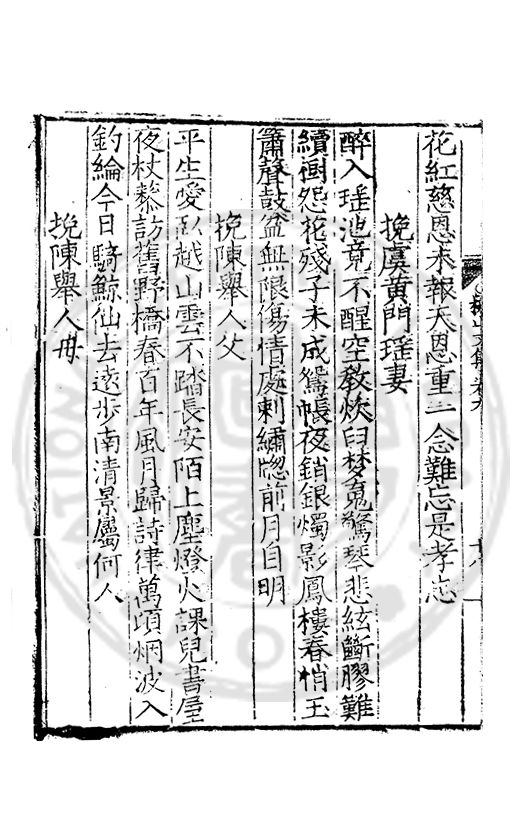 花紅慈恩未報天恩重一念難忘是孝忠
挽虞黃門瑶妻
醉入瑶池竟不醒空教炊臼夢䰟驚琴悲絃斷膠難
續樹怨花殘子未成鴛帳夜銷銀燭影鳳樓春悄玉
簫聲鼓盆無限傷情處刺繡窓前月自明
挽陳舉人父
平生愛臥越山雲不踏長安陌上塵燈火課兒書屋
夜杖藜訪舊野橋春百年風月歸詩律萬頃烟波入
釣綸今日騎鯨仙去遠步南清景屬何人
挽陳舉人母